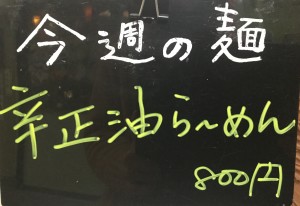 今週の麺
辛正油ら~めん
800円